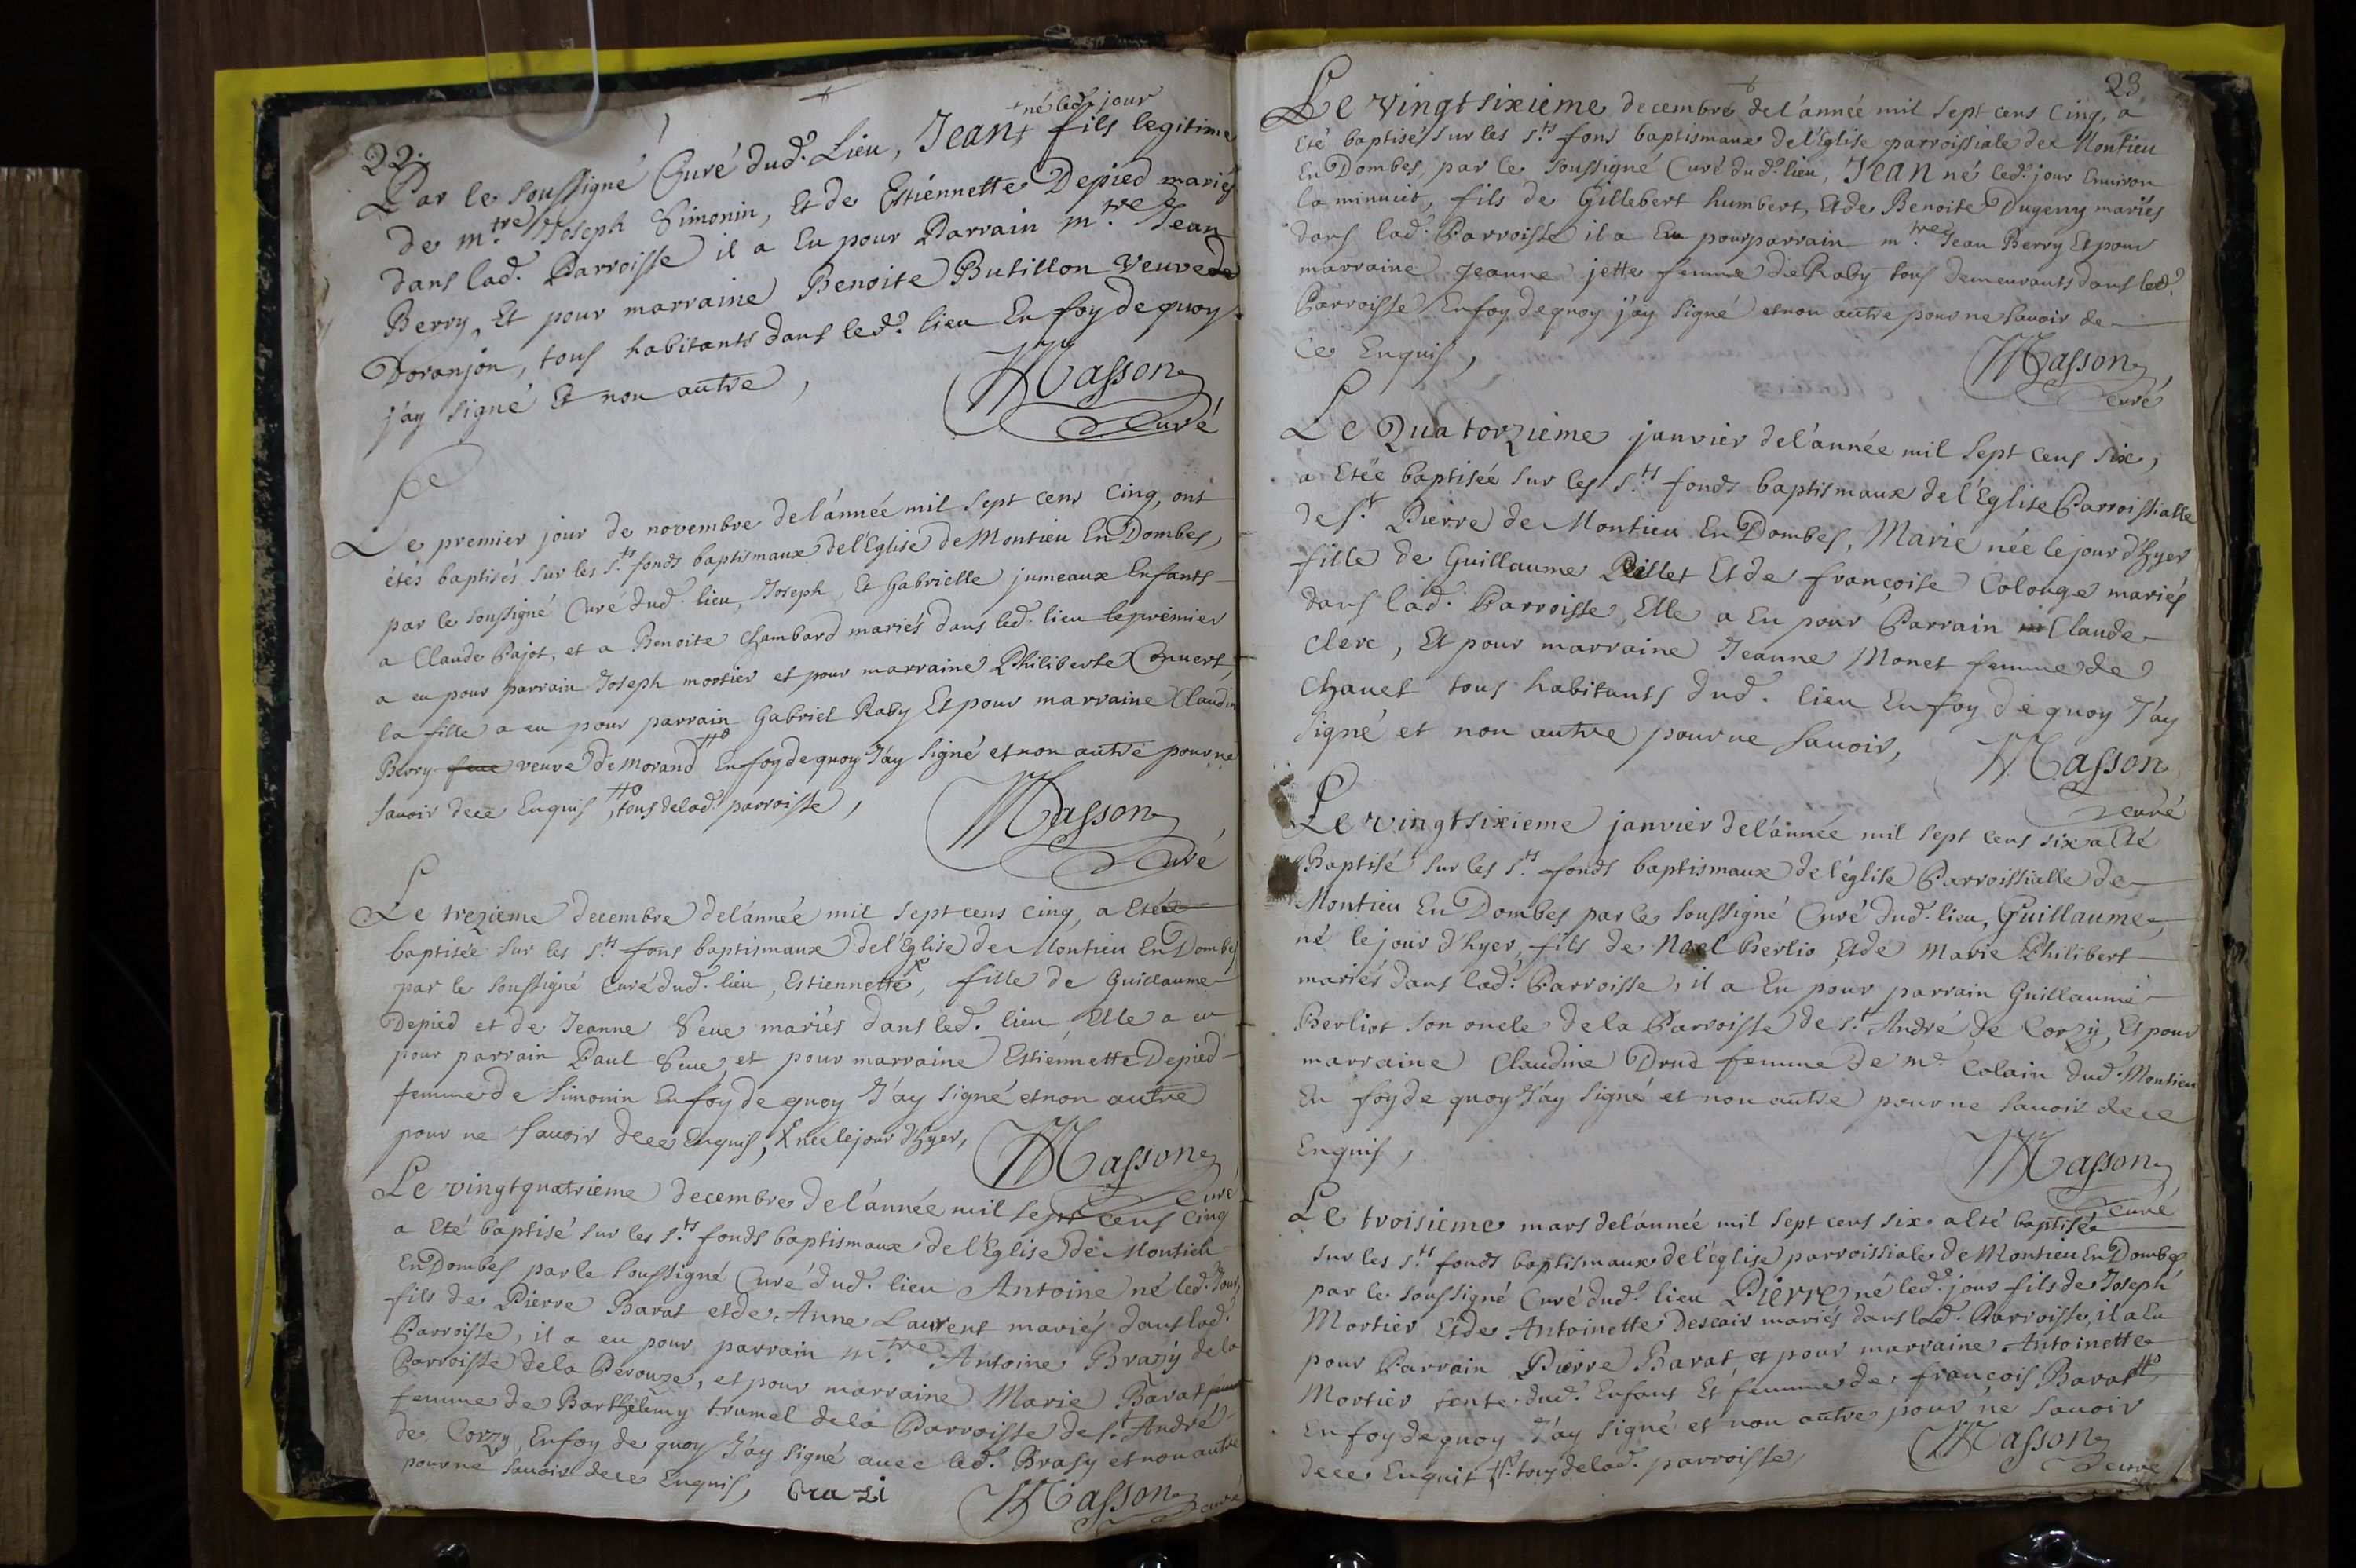 22.
+né led. jour
Par le soussigné Curé dud. Lieu, Jean+ fils legitime
de m.tre Joseph Simonin, Et de Estiennette Depied mariés
dans lad. Parroisse il a Eu pour Parrain m.tre Jean
Berry, Et pour marraine Benoite Butillon Veuve de
Doranjon, tous habitants dans led. lieu En foy de quoy
j'ay signé Et non autre,
Masson
Curé
Le premier jour de novembre de l'année mil sept cens cinq, ont
étés baptisés sur les s.ts fonds baptismaux de l'Eglise de Montieu En Dombes,
par le soussigné Curé dud. lieu, Joseph, Et Gabrielle jumeaux Enfants
a Claude Pajot, et a Benoite Chambard mariés dans led. lieu le premier
a eu pour parrain Joseph mortier et pour marraine Philiberte Convert,
la fille a eu pour parrain Gabriel Raby Et pour marraine Claudin
Berry veuve de morand # En foy de quoy J'ay signé et non autre pour ne
savoir dece Enquis, # tous de lad. parroisse,
Masson
Curé
Le trezieme decembre de l'année mil sept cens cinq, a Eteé
baptisée sur les s.ts fons baptismaux de l'Eglise de Montieu En Dombes
par le soussigné Curé dud. lieu, Estiennette x, fille de Guillaume
Depied et de Jeanne Seue mariés dans led. lieu, Elle a eu
pour parrain Paul Seue, et pour marraine Estiennette Depied
femme de Simonin En foy de quoy J'ay signé et non autre
pour ne savoir dece enquis, x née le jour d'hyer,
Masson
Curé
Le vingtquatrieme decembre de l'année mil sept cens cinq
a Eté baptisé sur les s.ts fonds baptismaux de l'Eglise de Montieu
En Dombes par le soussigné Curé dud. lieu Antoine né led. Jour,
fils de Pierre Barat et de Anne Laurent mariés dans lad.
Parroisse, il a eu pour parrain m.tre Antoine Brazy de la
Parroisse de la Perouze, et pour marraine Marie Barat
femme de Barthelemy trumel de la Parroisse de s.t André
de Corzy, En foy de quoy J'ay signé avec led. Brasy et non autre
pour ne savoir dece Enquis,
Brazi
Masson
Curé
23
Le vingt sixieme decembre de l'année mil sept cens cinq, a
Eté baptisé sur les s.ts fons baptismaux de l'Eglise parroissiale de Montieu
En Dombes, par le soussigné Curé dud. lieu, Jean né led. jour Environ
la minuit, fils de Gillebert humbert, Et de Benoite Dugeny mariés
dans lad. Parroisse il a Eu pour parrain m.tre Jean Berry Et pour
marraine Jeanne jette femme de Raby tous demeurants dans lad.
Parroisse En foy de quoy j'ay signé et non autre pour ne savoir de
ce Enquis,
Masson
curé
Le Quatorzieme janvier de l'année mil sept cens six,
a Etée baptisée sur les s.ts fonds baptismaux de l'Eglise Parroissialle
de s.t Pierre de Montieu En Dombes, Marie née le jour d'hyer
fille de Guillaume Peillet Et de françoise Colonge mariés
dans lad. Parroisse, Elle a Eu pour Parrain Claude
Clerc, Et pour marraine Jeanne Monet femme de
Chanet tous habitants dud. lieu En foy de quoy J'ay
signé et non autre pour ne savoir,
Masson
curé
Le vingt sixieme janvier de l'année mil sept cens six a Eté
Baptisé sur les s.ts fonds baptismaux de l'église Parroissialle de
Montieu En Dombes par le soussigné Curé dud. lieu, Guillaume
né le jour d'hyer, fils de Noel Berlio, Et de Marie Philibert
mariés dans lad. Parroisse, il a Eu pour parrain Guillaume
Berliot son oncle de la Parroisse de s.t André de Corzy, Et pour
marraine Claudine Drud femme de m.e Colain dud. Montieu
En foy de quoy J'ay signé et non autre pour ne savoir dece
Enquis,
Masson
curé
Le troisieme mars de l'année mil sept cens six a Eté baptisé
sur les s.ts fonds baptismaux de l'église parroissiale de Montieu En Dombes
par le soussigné Curé dud. lieu Pierre né led. jour fils de Joseph
Mortier Et de Antoinette Descair mariés dans lad. Parroisse, il a Eu
pour Parrain Pierre Barat, et pour marraine Antoinette
Mortier tente dud. Enfant Et femme de françois Barat #
En foy de quoy J'ay signé et non autre pour ne savoir
dece Enquis # tous de lad. parroisse,
Masson
curé